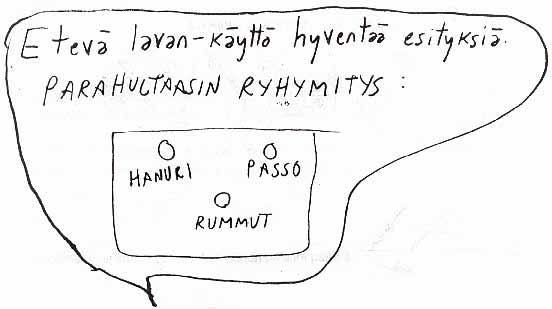 Etevä lavan-käyttö hyventää esityksiä.
PARAHULTAASIN RYHYMITYS :
HANURI PASSO
RUMMUT